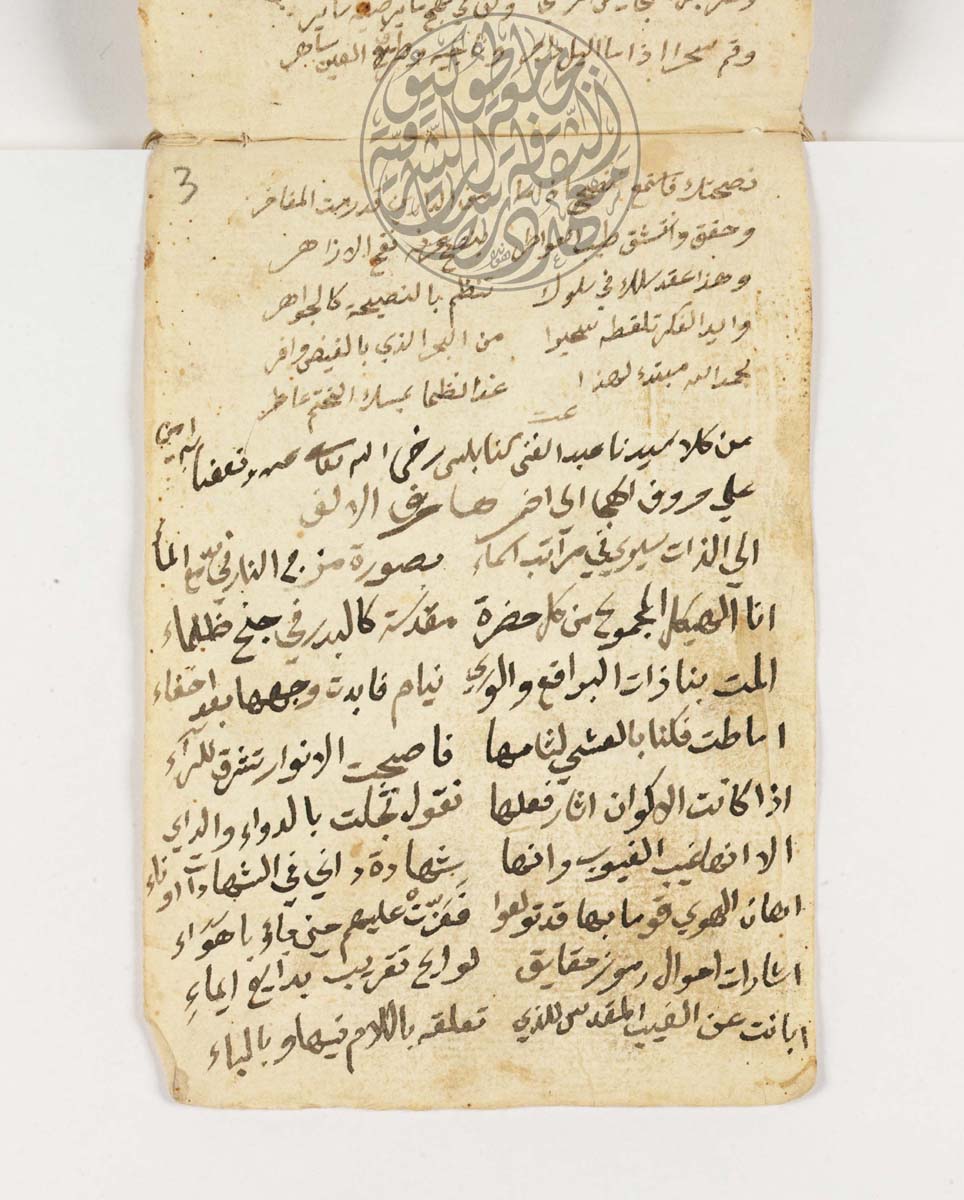 وقم سحرا اذا ما الليل
3
نصحتك فاستمع قد رمت المفاخر
وحقق وانتشق طيب نفح الازاهر
وهذا عقد سلك في سلوك تنظم بالنصيحة كالجواهر
وايد الفكر تلقطه سحيرا من البحر الذي بالفيض وافر
بحمد الله مبتدء لهذا غدا نظما بمسك الختم عاطر
تمت
من كلام سيدنا عبد الغني النابلسي رضى الله تعالى عنه ونفعنا به امين
علي حروف الهجا الى اخرها حرف الالف
الي الذات سيري في مراتب اسماء بصورة مزج النار في مع الماء
انا الهيكل المجموع من كل حضرة مقدسة كالبدر في جنح ظلماء
المت بنا ذات البراقع والوري نيام فابدت وجهها بعد اخفاء
اماطت فكنا بالعشي لثامها فاصبحت الانوار تشرق للرآء
اذا كانت الاكوان اثار فعلها نقول تجلت بالدواء والداي
الا انها غيب الغيوب وانها شهادة داني في الشهادات او ناء
اهان الهوي قوما بها قد تولعوا فعزت عليهم حين باؤ باهواء
اشارات احوال رموز حقايق لوايح تقريب بدايع ايماء
ابانت عن الغيب المقدس للذي تعلقه باللام فيها وبالباء